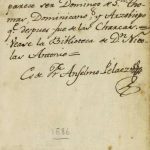 parece ser Domingo de Sto. Tho-
mas, Dominicano, y Arzobispo
q.e despues fue de las Charcas.
Vease la Biblioteca de Dn. Nico-
las Antonio.
Fr. Anselmo
1886